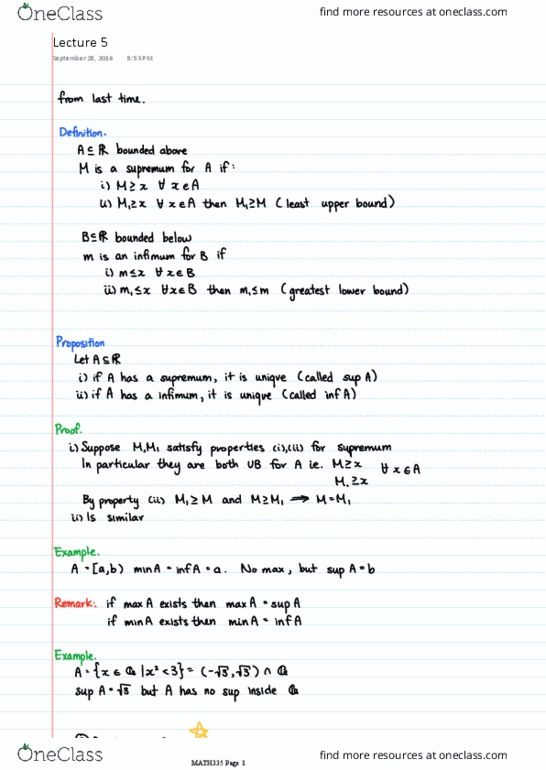 OneClass
find more resources at oneclass.com
Lecture 5
September 28, 2016 8:53 PM
from last time.
Definition.
A ⊆ ℝ bounded above
M is a supremum for A if:
i) M ≥ x ∀ x ∈ A
ii) M₁ ≥ x ∀ x ∈ A then M₁ ≥ M (least upper bound)
B ⊆ ℝ bounded below
m is an infimum for B if
i) m ≤ x ∀ x ∈ B
ii) m₁ ≤ x ∀ x ∈ B then m₁ ≤ m (greatest lower bound)
Proposition
Let A ⊆ ℝ
i) if A has a supremum, it is unique (called sup A)
ii) if A has a infimum, it is unique (called inf A)
Proof.
i) Suppose M, M₁ satisfy properties (i), (ii) for supremum
In particular they are both UB for A ie. M ≥ x ∀ x ∈ A
M₁ ≥ x
By property (ii) M₁ ≥ M and M ≥ M₁ ⟹ M = M₁
ii) Is similar
Example.
A = [a,b) min A = inf A = a. No max, but sup A = b
Remark: if max A exists then max A = sup A
if min A exists then min A = inf A
Example.
A = {x ∈ ℚ | x² < 3} = (-√3, √3) ∩ ℚ
sup A = √3 but A has no sup inside ℚ
OneClass
MATH335 Page 1
find more resources at oneclass.com